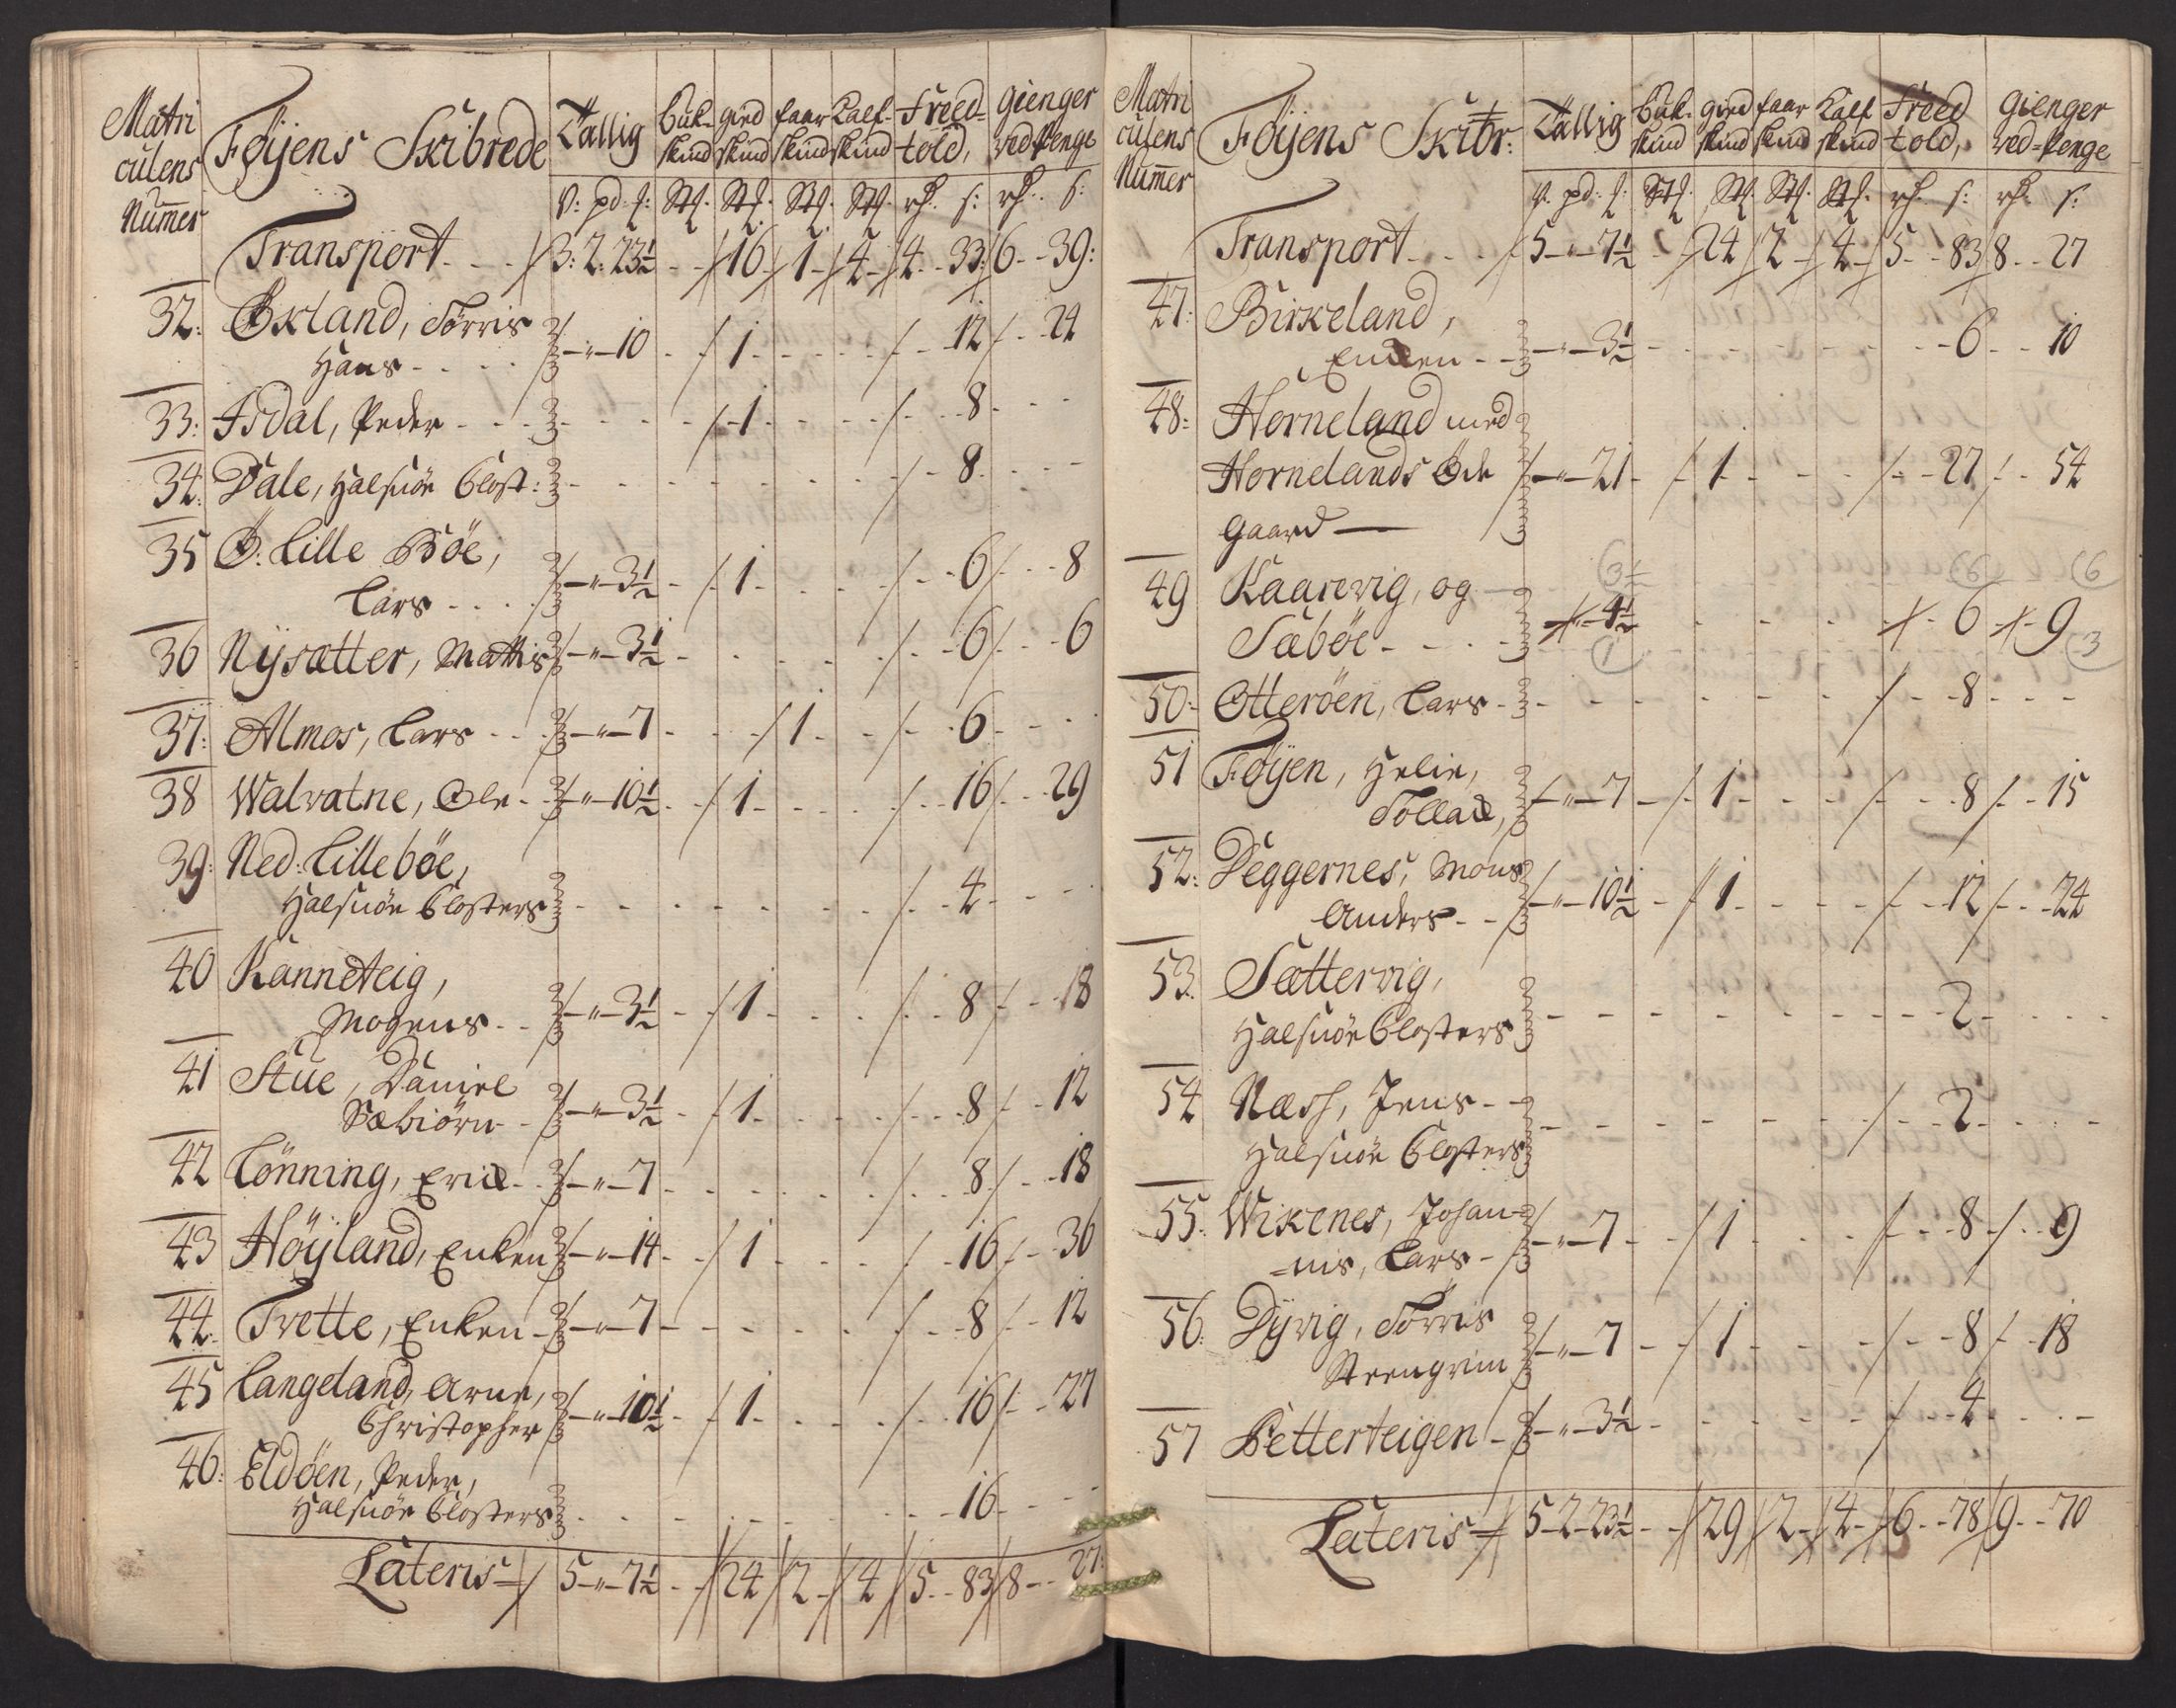 Matri
culens
Num̄er
Føyens Skibrede
Tallig
Buk-
skind
gied
skind
faar
skind
Kalf-
skind
Treed-
told,
gienger
ved Penge
V: pd: l: Stk. Stk. Stk. Stk. rd. s: rd. s:
Transport 3: 2: 23½ 16 1 4 4 33: 6 39:
32: Økland, Torris
Hans 10 1 12 24
33: Isdal, Peder 1 8
34: Dale, Halsnøe Clost: 8
35 Ø: Lille Bøe,
Lars 3½ 1 6 8
36 Nysætter, Mattis 3½ 6 6
37: Almos, Lars 7 1 6
38 Walvatne, Ole 10½ 1 16 29
39: Ned: Lillebøe,
Halsnøe Closters 4
40 Kanneteig,
Mogens 3½ 1 8 18
41 Stue, Daniel
Sæbiørn 3½ 1 8 12
42 Lønning, Erich 7 8 18
43 Høyland, Enken 14 1 16 36
44: Tvette, Enken 7 8 12
45 Langeland, Arne,
Christopher 10½ 1 16 27
46: Eldøen, Peder,
Halsnøe Closters 16
Lateris 5 " 7½ 24 2 4 5 83 8 27:
Matri
culens
Num̄er
Føyens Skibr:
Tallig
Buk-
skind
gied
skind
faar
skind
Kalf
skind
Treed
told,
gienger
ved=Penge
V. pd: l: Stk. Stk. Stk. Stk. rd. s: rd. s:
Transport 5 " 7½ 24 2 4 5 83 8 27
47: Birkeland,
Enken 3½ 6 10
48: Horneland med
Hornelands Øde 21 1 27 54
Gaard
49 Kaarevig, og 3½ 6 6
Sæbøe 4½ 6 9
1 3
50: Otterøen, Lars 8
51 Føyen, Helie,
Tollach, 7 1 8 15
52: Deggernes, Mons
Anders 10½ 1 12 24
53. Sættervig,
Halsnøe Closters 2
54 Næss, Jens
Halsnøe Closters 2
55. Wikenes, Johan-
=nis, Lars 7 1 8 9
56: Dyvig, Torris
Steengrim 7 1 8 18
57 Petterteigen 3½ 4
Lateris 5 2 23½ 29 2 4 6 78 9 70